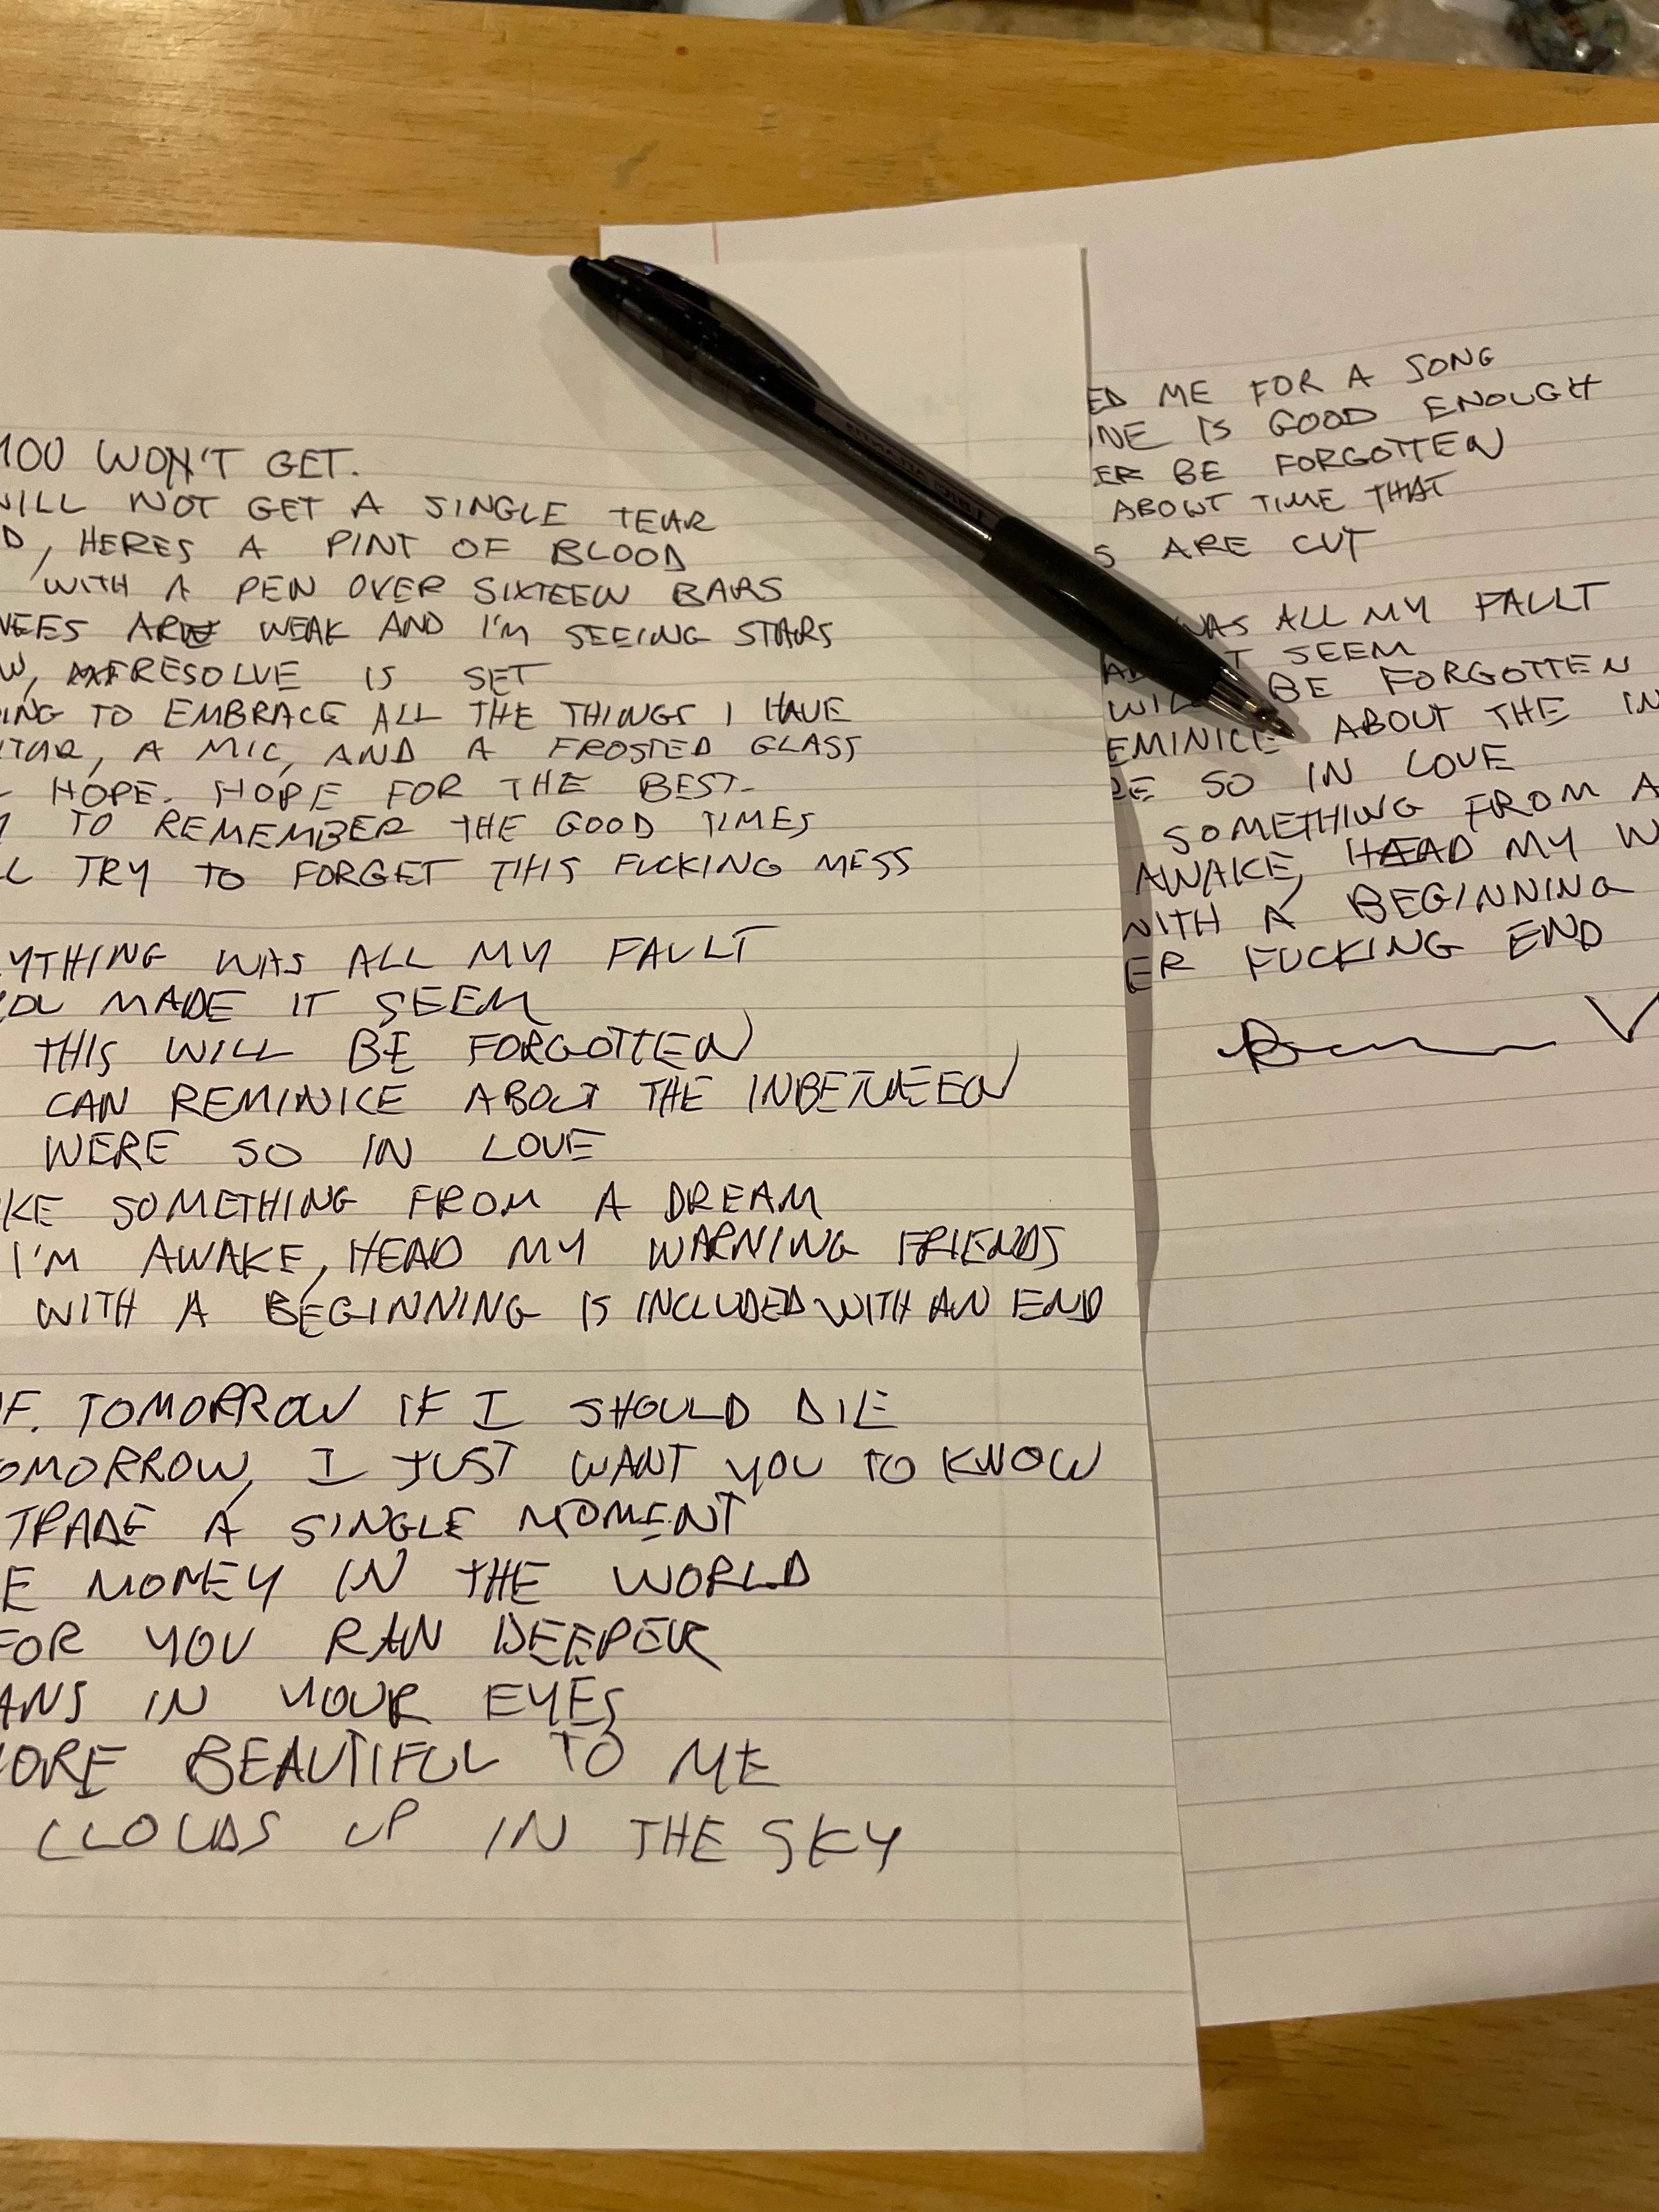 YOU WON'T GET.
WILL NOT GET A SINGLE TEAR
D, HERES A PINT OF BLOOD
WITH A PEN OVER SIXTEEN BARS
NEES ARE WEAK AND I'M SEEING STARS
W, RESOLVE IS SET
ING TO EMBRACE ALL THE THINGS I HAVE
ITAR, A MIC, AND A FROSTED GLASS
HOPE. HOPE FOR THE BEST-
TO REMEMBER THE GOOD TIMES
L TRY TO FORGET THIS FUCKING MESS
YTHING WAS ALL MY FAULT
YOU MADE IT SEEM
THIS WILL BE FORGOTTEN
CAN REMINICE ABOUT THE INBETWEEN
WERE SO IN LOVE
KE SOMETHING FROM A DREAM
I'M AWAKE, HEAD MY WARNING FRIENDS
WITH A BEGINNING IS INCLUDED WITH AN END
F. TOMORROW IF I SHOULD DIE
OMORROW, I JUST WANT YOU TO KNOW
TRADE A SINGLE MOMENT
E MONEY IN THE WORLD
FOR YOU RAN DEEPER
ANS IN YOUR EYES
MORE BEAUTIFUL TO ME
CLOUDS UP IN THE SKY
ED ME FOR A SONG
INE IS GOOD ENOUGH
ER BE FORGOTTEN
ABOUT TIME THAT
S ARE CUT
WAS ALL MY FALLT
T SEEM
WILL BE FORGOTTEN
EMINICE ABOUT THE IN
RE SO IN LOVE
SOMETHING FROM A
AWAKE, HEAD MY W
WITH A BEGINNING
ER FUCKING END